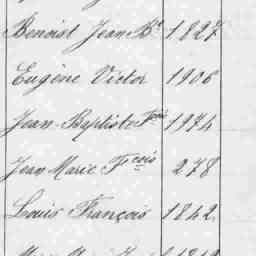 Benoist Jean Bte 1827
Eugène Victor 1906
Jean Baptiste Fçois 1974
Jean Marie Fçois 278
Louis François 1842